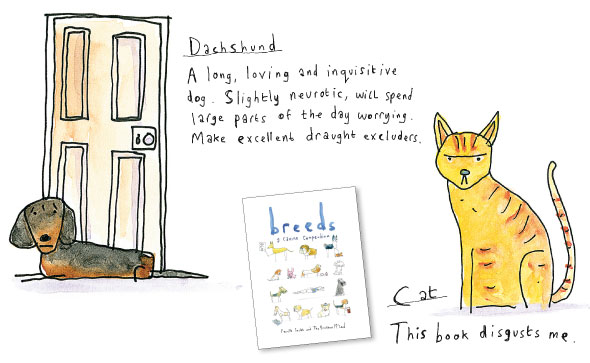 Dachshund
A long, loving and inquisitive
dog. Slightly neurotic, will spend
large parts of the day worrying.
Make excellent draught excluders.
breeds
a Canine Compendium
Cat
This book disgusts me.